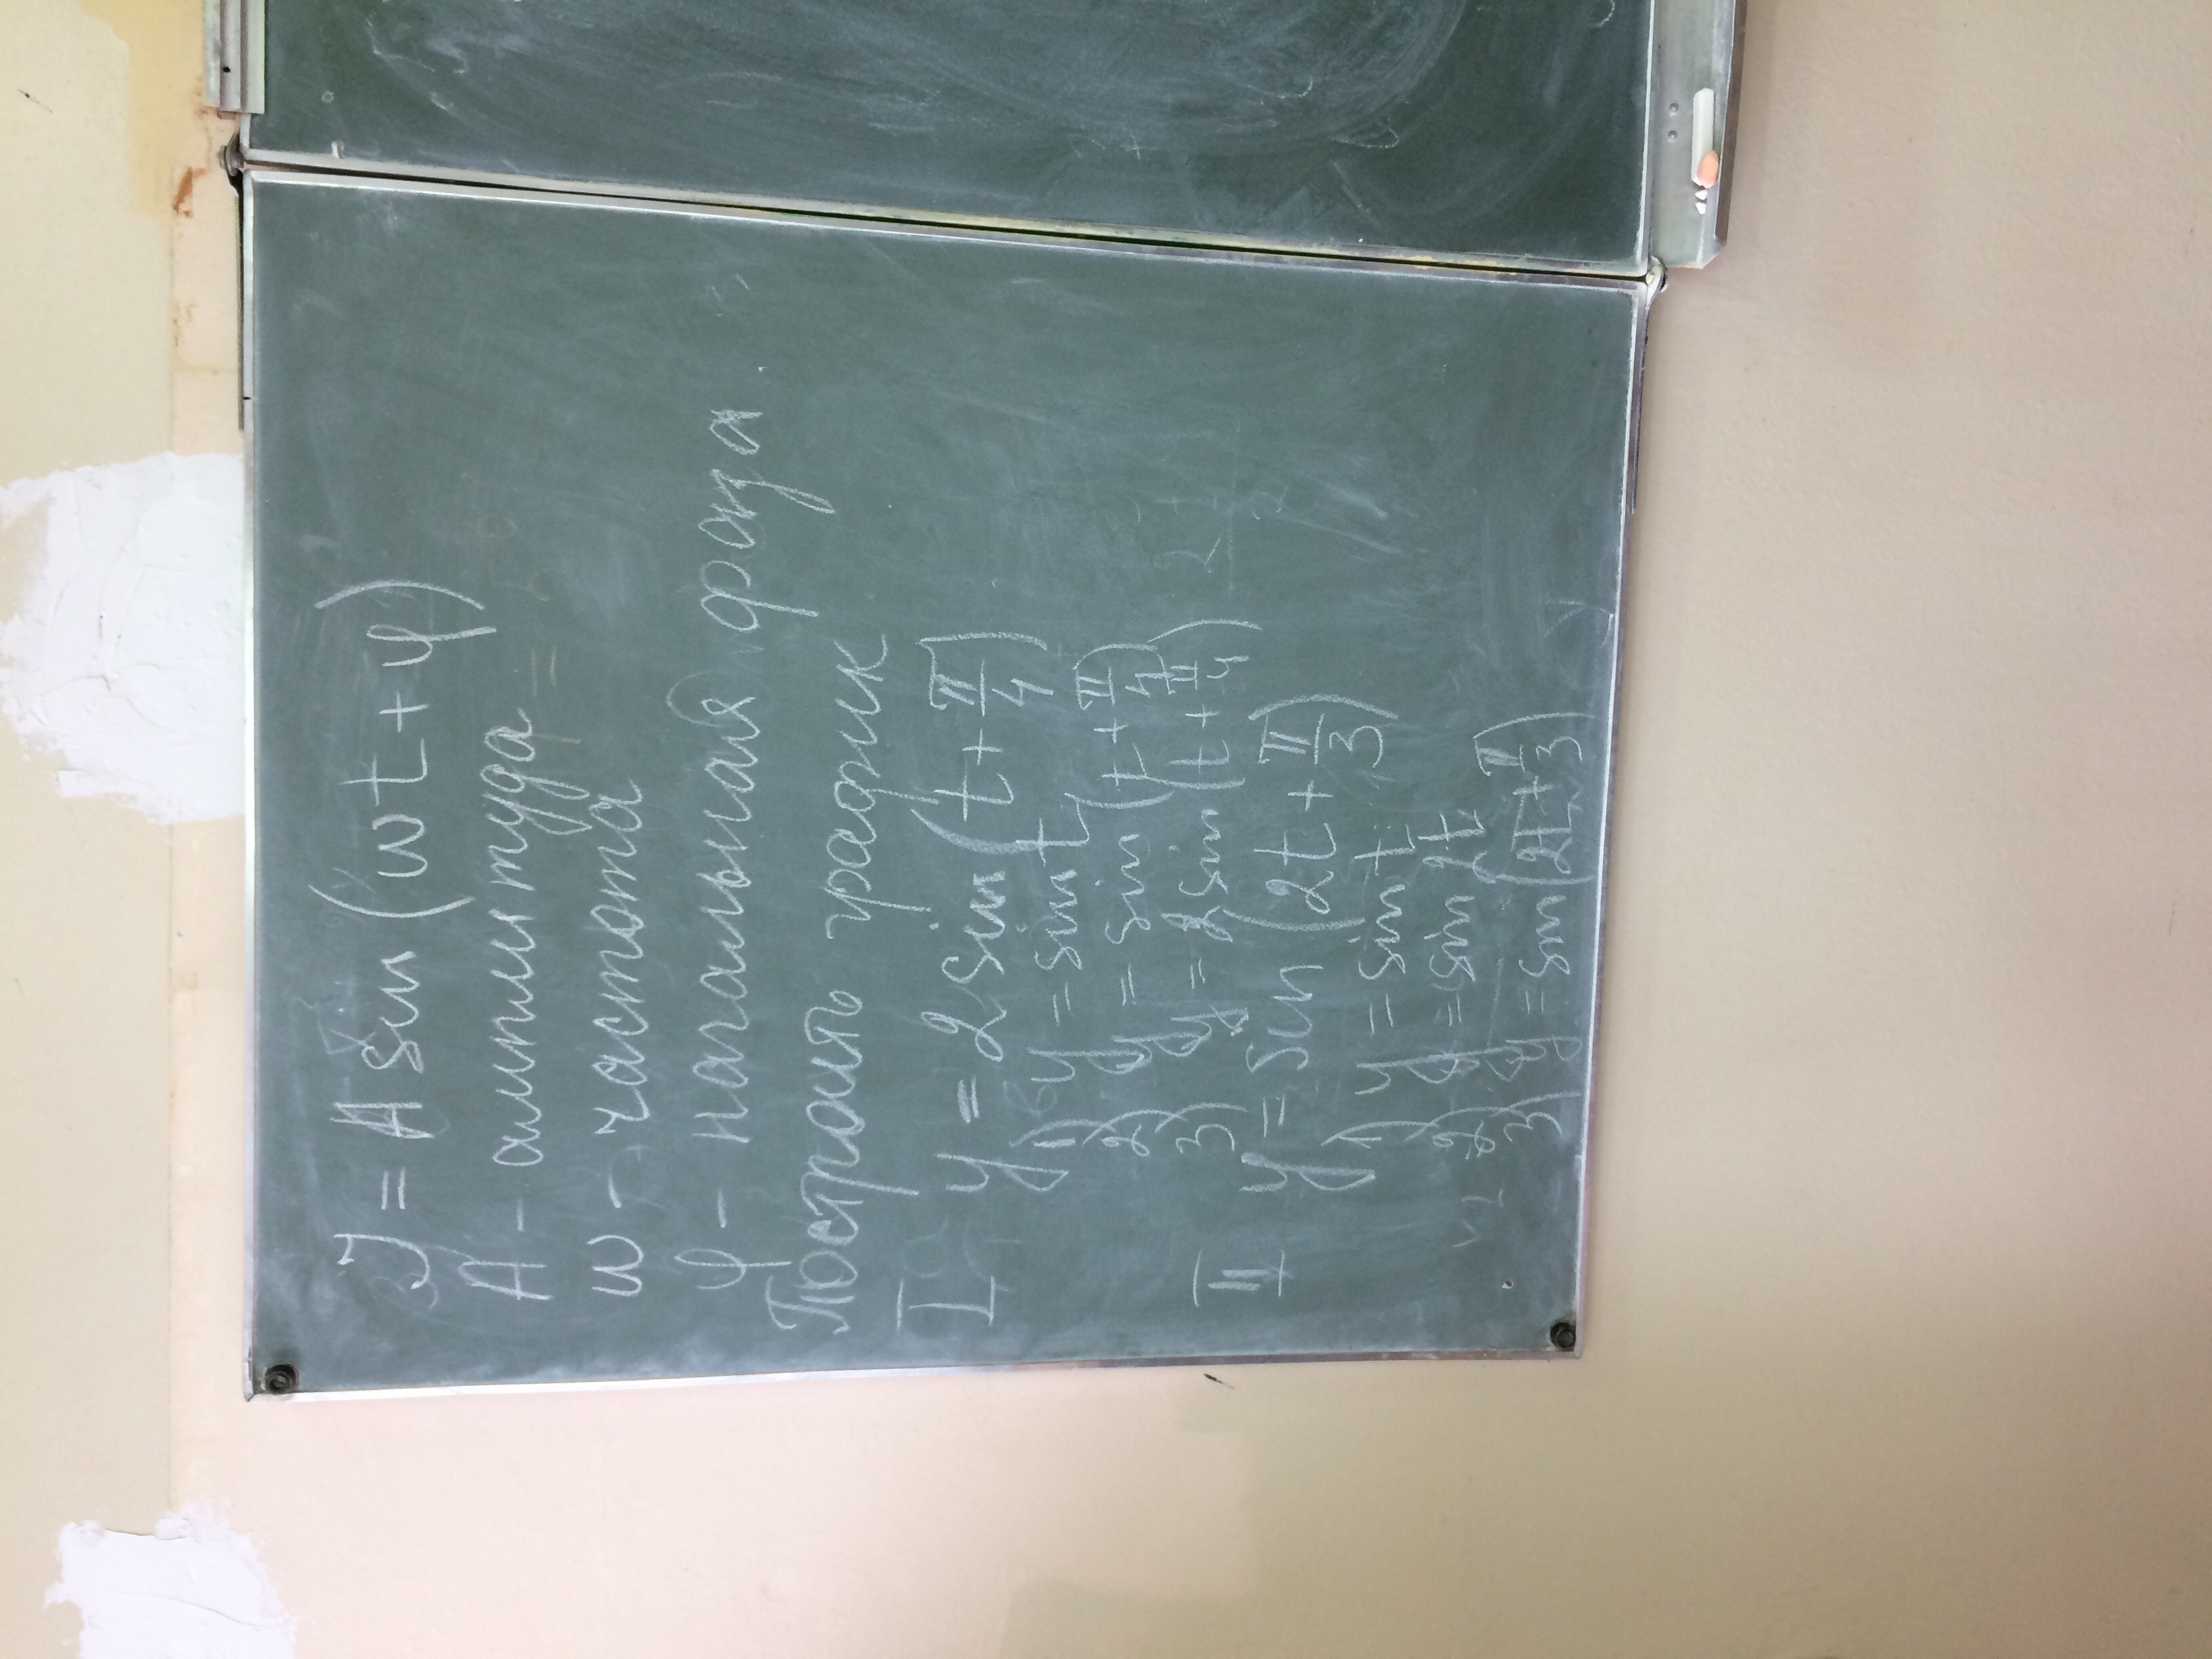 y = A sin (ωt + φ)
A - амплитуда
ω - частота
φ - начальная фаза
Построить график
I y = 2 sin (t + π/4)
1) y = sin t
2) y = sin (t + π/4)
3) y = 2 sin (t + π/4)
II y = sin (2t + π/3)
1) y = sin t
2) y = sin 2t
3) y = sin (2t + π/3)